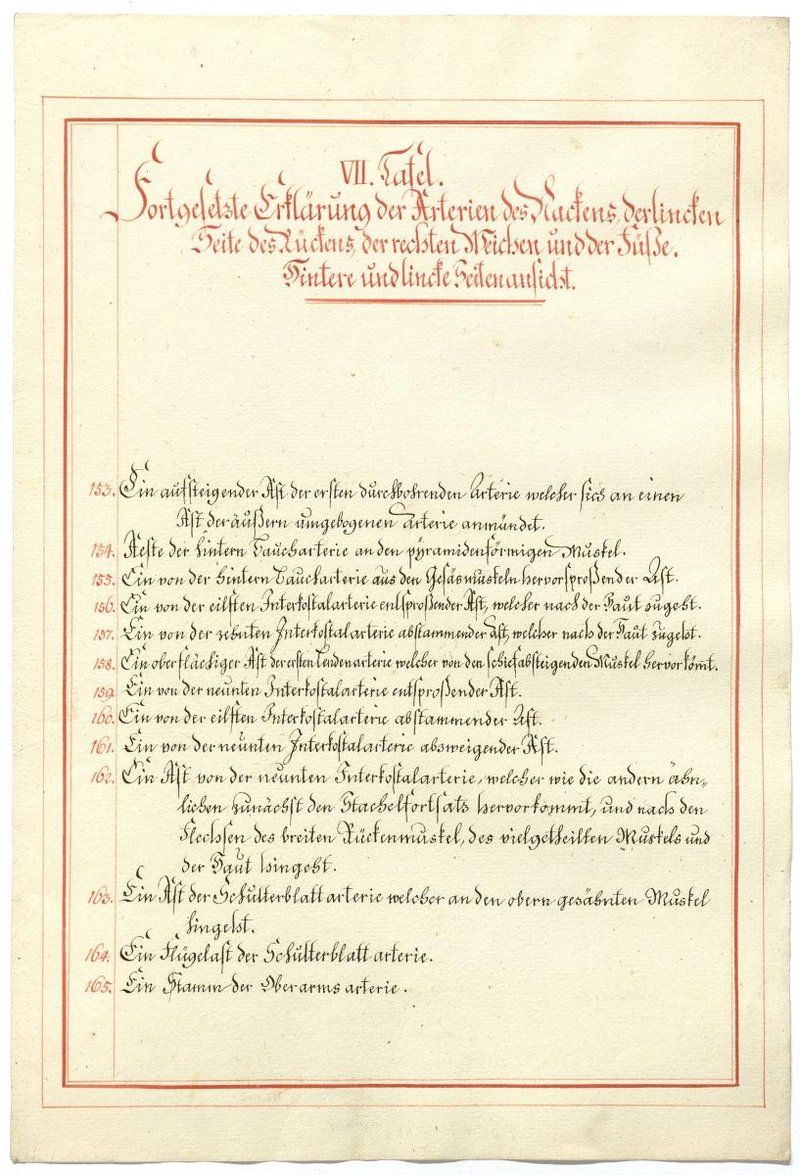 VII. Tafel.
Fortgesetzte Erklärung der Arterien des Nackens, der lincken
Seite des Rückens, der rechten Weichen und der Füße.
Hintere und lincke Seitenansicht.
153. Ein aufsteigender Ast der ersten durchbohrenden Arterie welcher sich an einen
Ast der äußern umgebogenen Arterie anmündet.
154. Aeste der hintern Baucharterie an den pyramidenförmigen Muskel.
155. Ein von der hintern Baucharterie aus den Gesäsmuskeln hervorsproßender Ast.
156. Ein von der eilften Interkostalarterie entsproßender Ast, welcher nach der Haut zugeht.
157. Ein von der zehnten Interkostalarterie abstammender Ast, welcher nach der Haut zugeht.
158. Ein oberflächiger Ast der ersten Lendenarterie welcher von den schiefabsteigenden Muskel hervorkömt.
159. Ein von der neunten Interkostalarterie entsproßender Ast.
160. Ein von der eilften Interkostalarterie abstammender Ast.
161. Ein von der neunten Interkostalarterie abzweigender Ast.
162. Ein Ast von der neunten Interkostalarterie, welcher wie die andern ähn-
lichen zunächst den Stachelfortsatz hervorkommt, und nach den
Flechsen des breiten Rückenmuskel, des vielgetheilten Muskels und
der Haut hingeht.
163. Ein Ast der Schulterblattarterie welcher an den obern gezähnten Muskel
hingeht.
164. Ein Flügelast der Schulterblattarterie.
165. Ein Stamm der Oberarmsarterie.